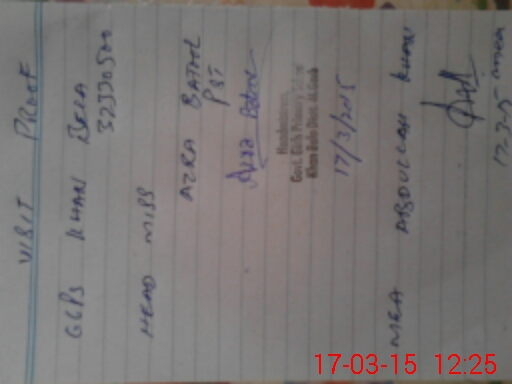 VISIT PROOF
GGPS KHAN BELA
32330500
HEAD MISS
AZRA BATOOL
PST
Azra Batool
Headmistress
Govt. Girls Primary School
17/3/2015
MEA ABDULLAH KHAN
17-3-15
17-03-15 12:25